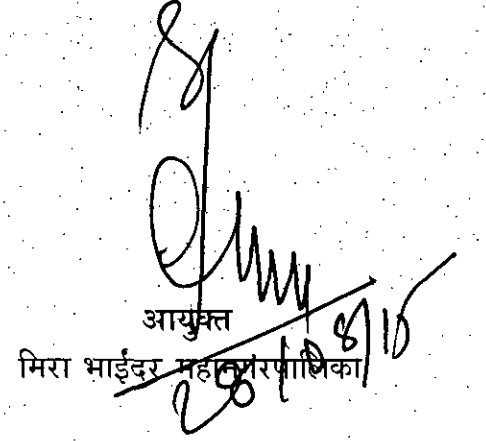 आयुक्त
मिरा भाईंदर महानगरपालिका
28/08/15